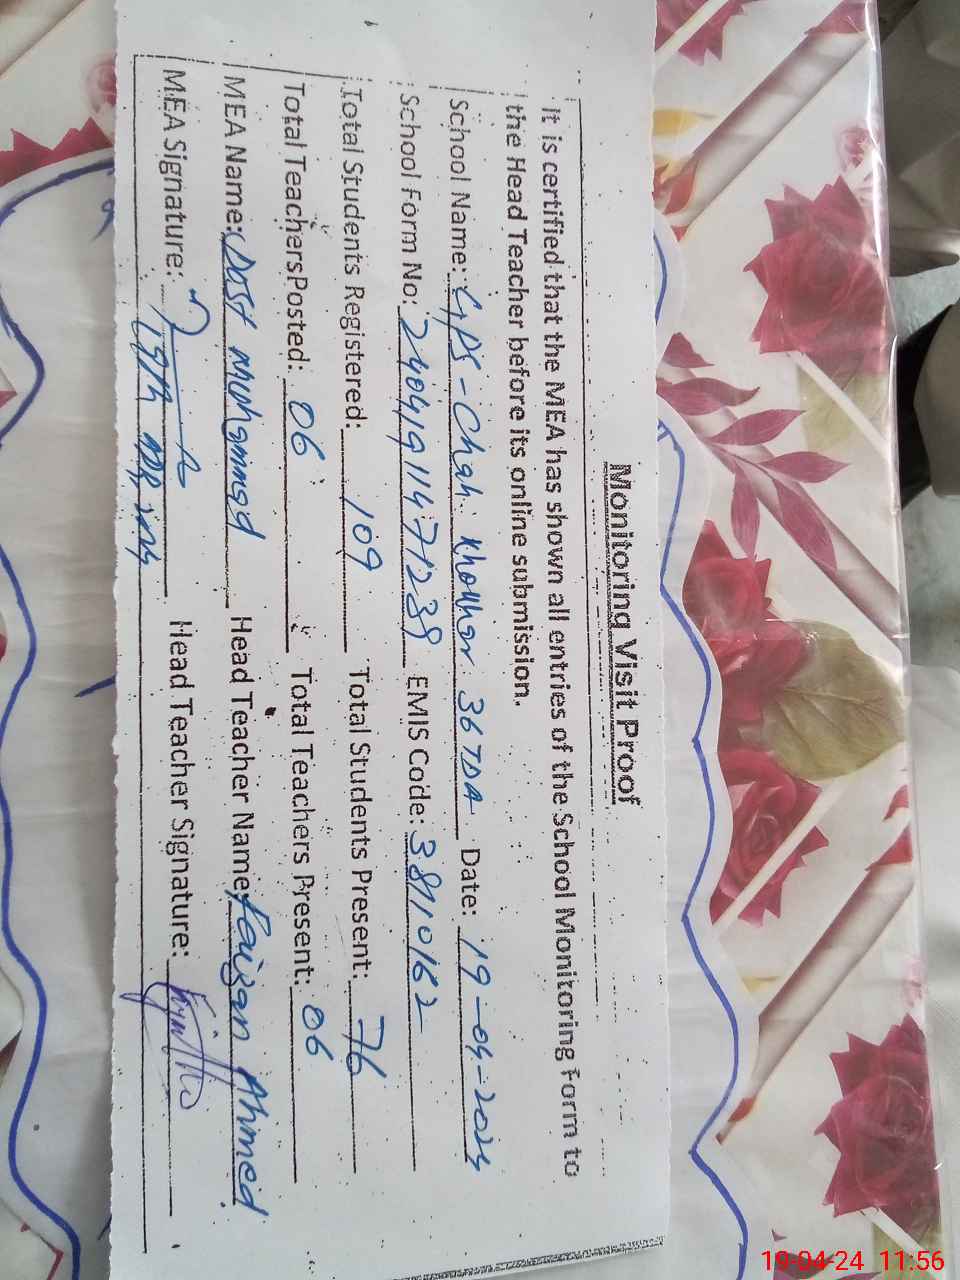 Monitoring Visit Proof
It is certified that the MEA has shown all entries of the School Monitoring Form to
the Head Teacher before its online submission.
School Name: GPS - Chah Khokhar 36 TDA Date: 19-04-2024
School Form No: 24041911471239 EMIS Code: 38110162
Total Students Registered: 109 Total Students Present: 76
Total Teachers Posted: 06 Total Teachers Present: 06
MEA Name: Dost Mohammad Head Teacher Name: Faizan Ahmed
MEA Signature: Head Teacher Signature:
19-04-24 11:56